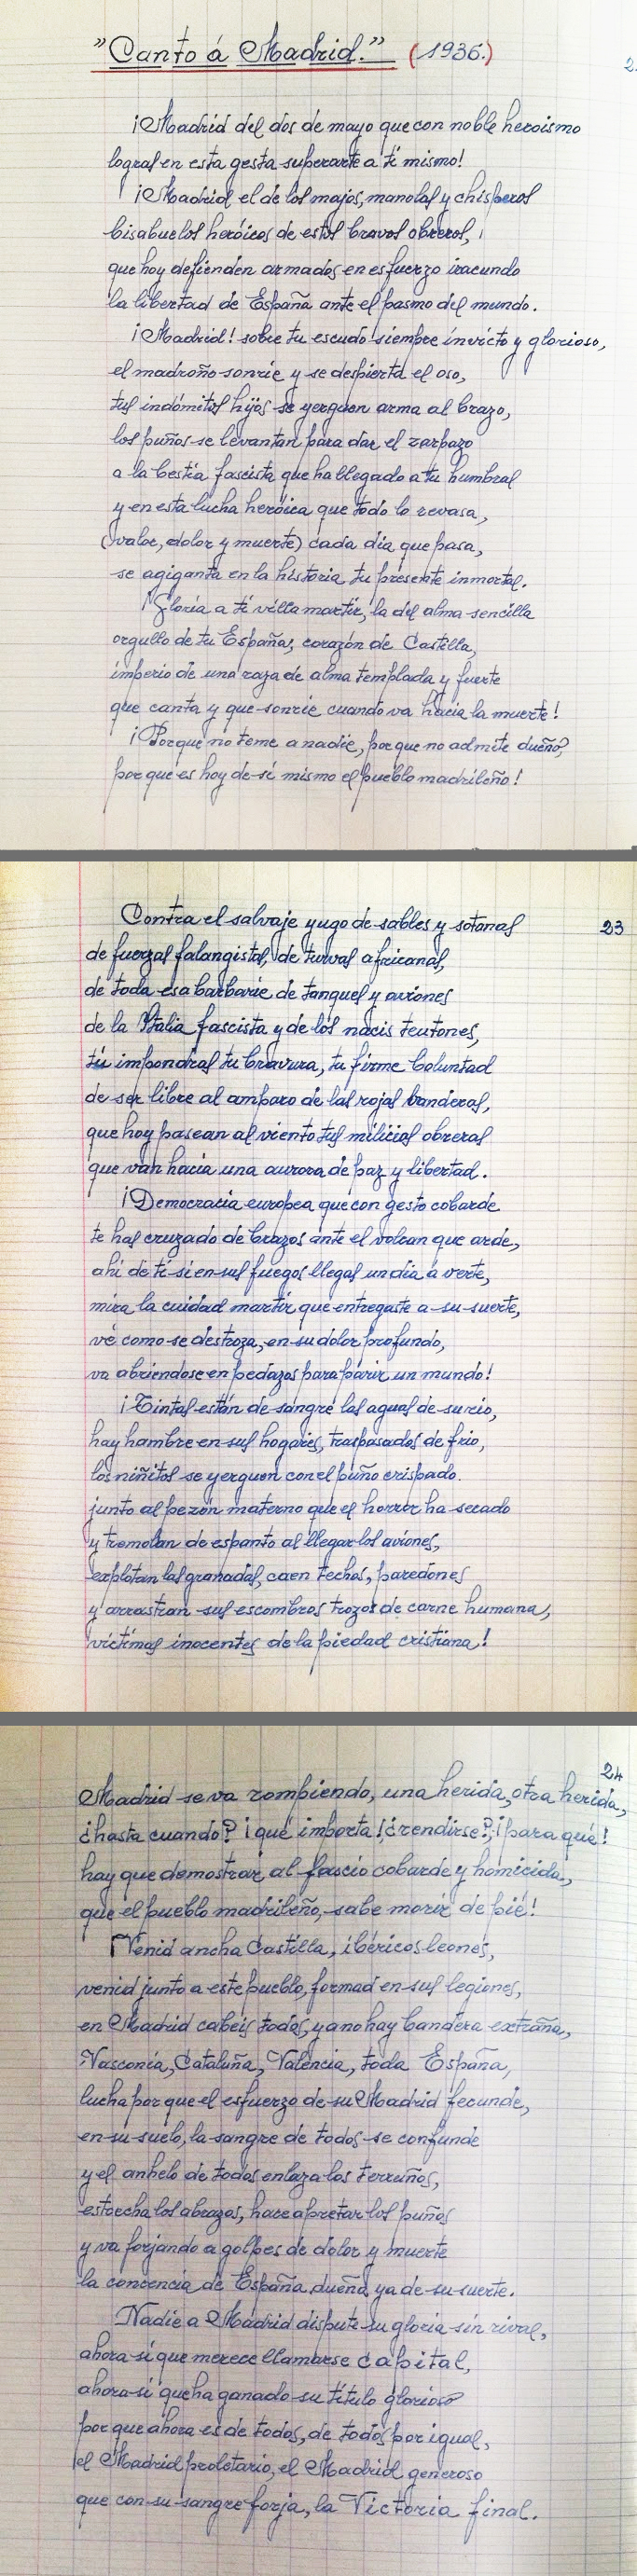 "Canto á Madrid." (1936.)
¡Madrid del dos de mayo que con noble heroismo
logras en esta gesta superarte a tí mismo!
¡Madrid el de los majos, manolas y chisperos
bisabuelos heróicos de estos bravos obreros, ¡
que hoy defienden armados en esfuerzo iracundo
la libertad de España ante el pasmo del mundo.
¡Madrid! sobre tu escudo siempre invicto y glorioso,
el madroño sonrie y se despierta el oso,
tus indómitos hijos se yerguen arma al brazo,
los puños se levantan para dar el zarpazo
a la bestia fascista que ha llegado a tu humbral
y en esta lucha heróica que todo lo revasa,
(valor, dolor y muerte) cada dia que pasa,
se agiganta en la historia tu presente inmortal.
¡Gloria a tí villa martir, la del alma sencilla
orgullo de tu España, corazón de Castilla,
imperio de una raza de alma templada y fuerte
que canta y que sonrie cuando va hacia la muerte!
¡Porque no teme a nadie, por que no admite dueño,
por que es hoy de sí mismo el pueblo madrileño!
23
Contra el salvaje yugo de sables y sotanas
de fuerzas falangistas, de turvas africanas,
de toda esa barbarie de tanques y aviones
de la Italia fascista y de los nacis teutones,
tú impondras tu bravura, tu firme boluntad
de ser libre al amparo de las rojas banderas,
que hoy pasean al viento tus milicias obreras
que van hacia una aurora de paz y libertad.
¡Democracia europea que con gesto cobarde
te has cruzado de brazos ante el volcan que arde,
ahi de tí si en sus fuegos llegas un dia á verte,
mira la cuidad martir que entregaste a su suerte,
vé como se destroza, en su dolor profundo,
va abriendose en pedazos para parir un mundo!
¡Tintas están de sangre las aguas de su rio,
hay hambre en sus hogares, traspasados de frio,
los niñitos se yerguen con el puño crispado
junto al pezón materno que el horror ha secado
y tremolan de espanto al llegar los aviones,
explotan las granadas, caen techos, paredones
y arrastran sus escombros trozos de carne humana,
victimas inocentes de la piedad cristiana!
24
Madrid se va rompiendo, una herida, otra herida,
¿hasta cuando? ¡qué importa! ¿rendirse?, ¡para qué!
hay que demostrar al fascio cobarde y homicida,
que el pueblo madrileño, sabe morir de pié!
Venid ancha Castilla, ibéricos leones,
venid junto a este pueblo, formad en sus legiones,
en Madrid cabeis todos, ya no hay bandera extraña,
Vasconia, Cataluña, Valencia, toda España,
lucha por que el esfuerzo de su Madrid fecunde,
en su suelo, la sangre de todos se confunde
y el anhelo de todos enlaza los terruños,
estrecha los abrazos, hace apretar los puños
y va forjando a golpes de dolor y muerte
la concencia de España dueña ya de su suerte.
Nadie a Madrid dispute su gloria sin rival,
ahora si que merece llamarse capital,
ahora si que ha ganado su título glorioso
por que ahora es de todos, de todos por igual,
el Madrid proletario, el Madrid generoso
que con su sangre forja, la Victoria final.